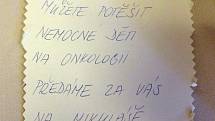 MŮŽETE POTĚŠIT
NEMOCNÉ DĚTI
NA ONKOLOGII
PŘEDÁME ZA VÁS
NA MIKULÁŠE